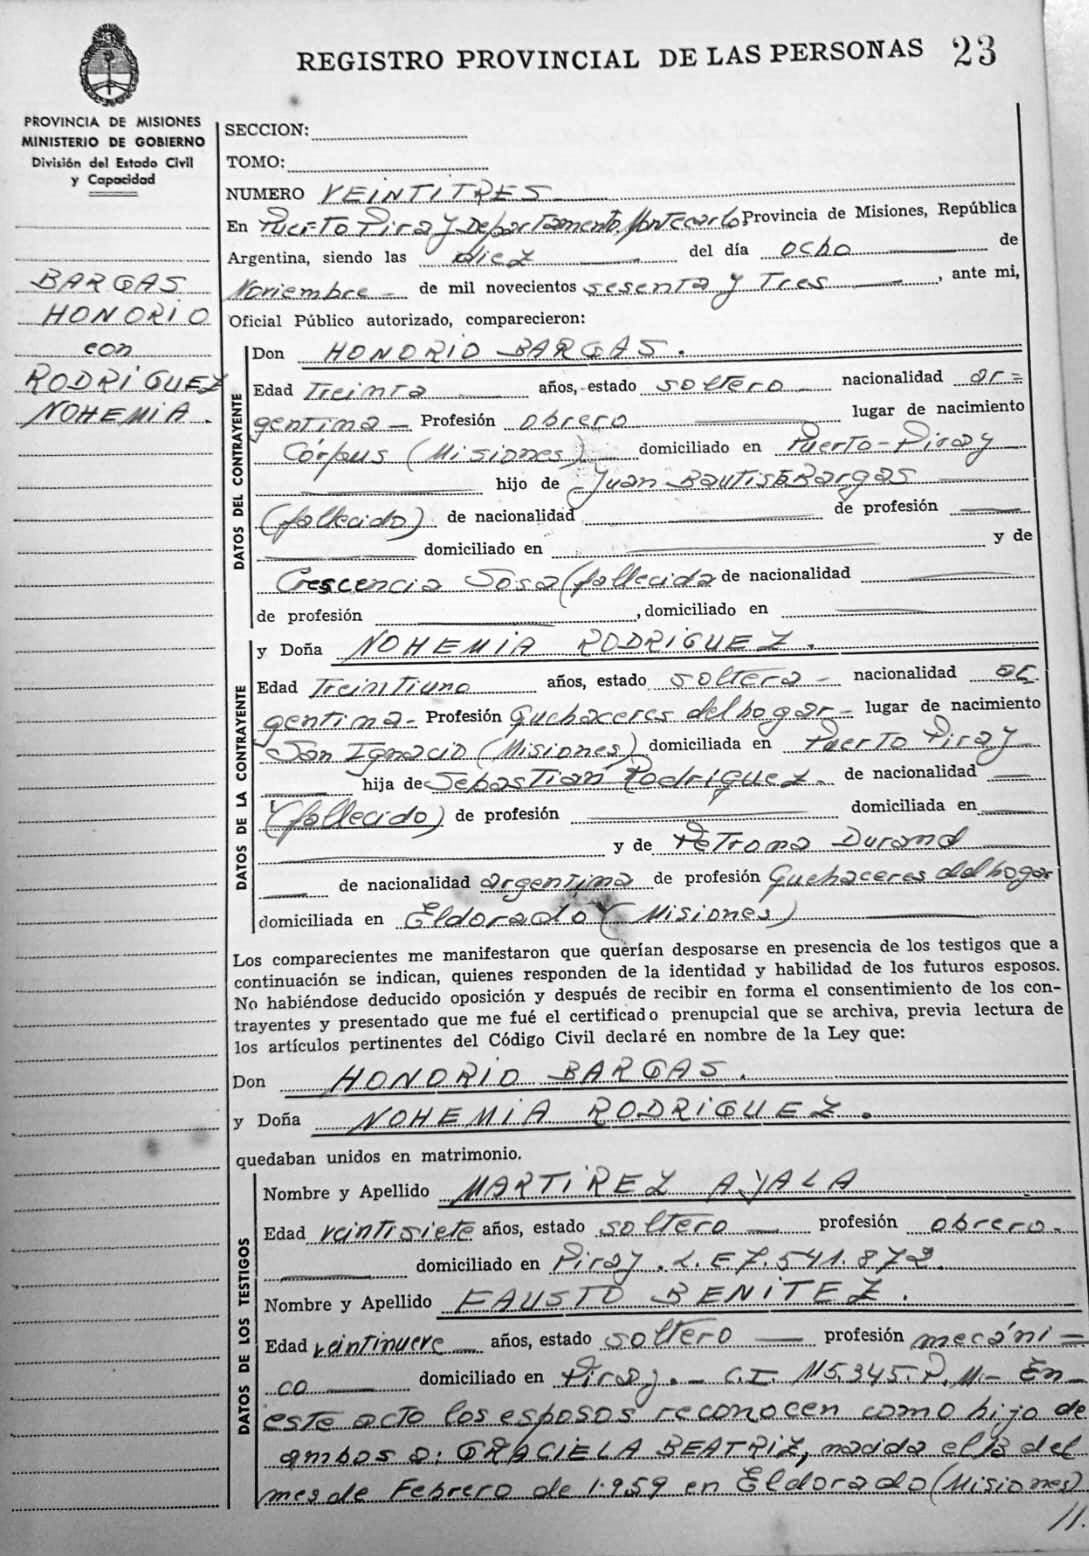 REGISTRO PROVINCIAL DE LAS PERSONAS 23
PROVINCIA DE MISIONES
MINISTERIO DE GOBIERNO
División del Estado Civil
y Capacidad
BARGAS
HONORIO
con
RODRIGUEZ
NOHEMIA.
SECCION:
TOMO:
NUMERO VEINTITRES
En Puerto Piray Departamento Montecarlo, Provincia de Misiones, República
Argentina, siendo las diez del día ocho de
Noviembre de mil novecientos sesenta y Tres, ante mi,
Oficial Público autorizado, comparecieron:
DATOS DEL CONTRAYENTE
Don HONORIO BARGAS.
Edad Treinta años, estado soltero nacionalidad ar=
gentina Profesión obrero lugar de nacimiento
Córpus (Misiones) domiciliado en Puerto-Piray
hijo de Juan Bautista Bargas
(fallecido) de nacionalidad de profesión
domiciliado en y de
Crescencia Sosa (fallecida de nacionalidad
de profesión , domiciliado en
DATOS DE LA CONTRAYENTE
y Doña NOHEMIA RODRIGUEZ.
Edad Treintiuno años, estado soltera nacionalidad ar-
gentina Profesión Quehaceres del hogar lugar de nacimiento
San Ignacio (Misiones) domiciliada en Puerto Piray
hija de Sebastian Rodriguez de nacionalidad
(fallecido) de profesión domiciliada en
y de Petrona Durand
de nacionalidad argentina de profesión Quehaceres del hogar
domiciliada en Eldorado (Misiones)
Los comparecientes me manifestaron que querían desposarse en presencia de los testigos que a
continuación se indican, quienes responden de la identidad y habilidad de los futuros esposos.
No habiéndose deducido oposición y después de recibir en forma el consentimiento de los con-
trayentes y presentado que me fué el certificado prenupcial que se archiva, previa lectura de
los artículos pertinentes del Código Civil declaré en nombre de la Ley que:
Don HONORIO BARGAS.
y Doña NOHEMIA RODRIGUEZ.
quedaban unidos en matrimonio.
DATOS DE LOS TESTIGOS
Nombre y Apellido MARTIREZ AYALA
Edad veintisiete años, estado soltero profesión obrero.
domiciliado en Piray. L.E. 7.541.872.
Nombre y Apellido FAUSTO BENITEZ.
Edad veintinueve años, estado soltero profesión mecáni=
co domiciliado en Piray.- C.I. 115.345. P.M.- En
este acto los esposos reconocen como hijo de
ambos a: GRACIELA BEATRIZ, nacida el 13 del
mes de Febrero de 1.959 en Eldorado (Misiones)
//.